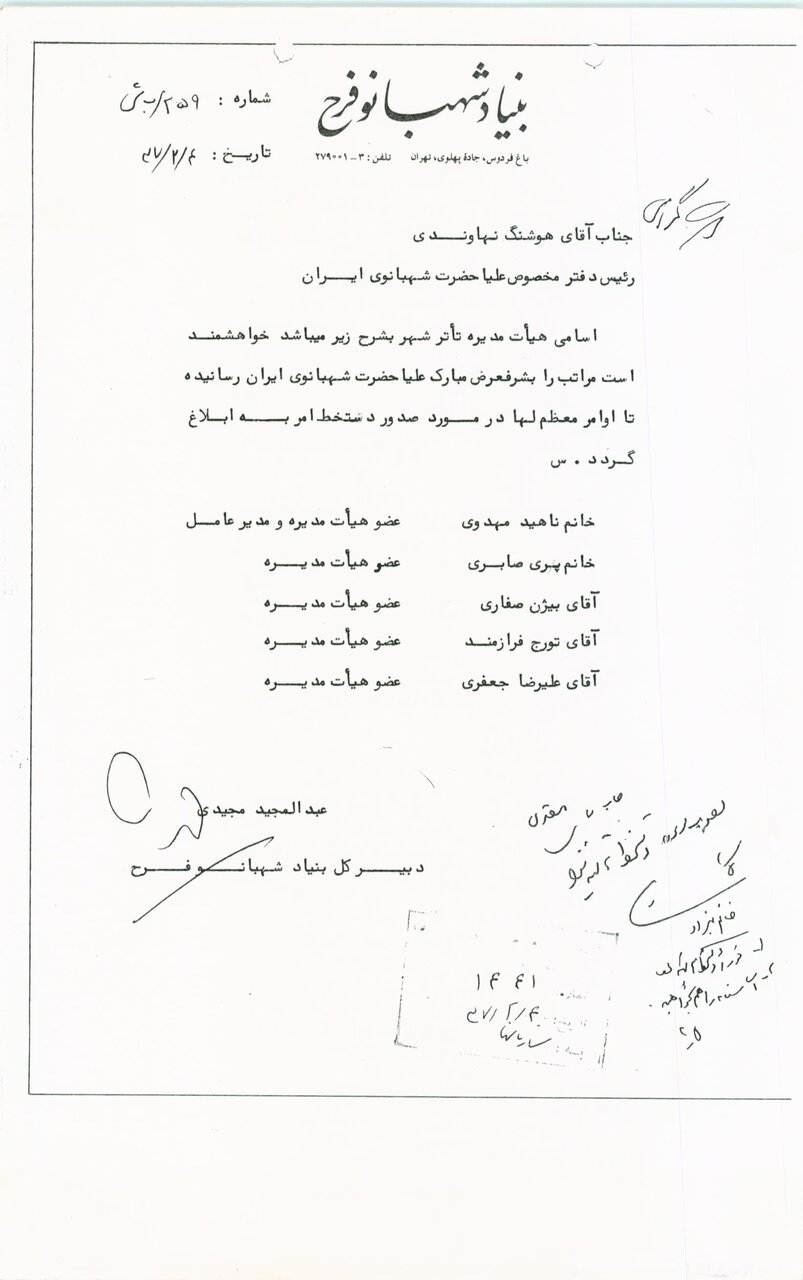 بنیاد شهبانو فرح
باغ فردوس، جادهٔ پهلوی، تهران تلفن: ۳ــ۲۷۹۰۰۱
شماره : ۲۵۹/ب ش
تاریـخ : ۳۷/۲/۴
جناب آقای هوشنگ نهاونـــدی
رئیس دفتر مخصوص علیاحضرت شهبانوی ایـــران
اسامی هیأت مدیره تأتر شهر بشرح زیر میباشد خواهشمنـد
است مراتب را بشرفعرض مبارک علیاحضرت شهبانوی ایران رسانیده
تا اوامر معظم لها در مـــورد صدور دستخط امر بـــه ابـلاغ
گـردد . س
خانم ناهید مهدوی عضو هیأت مدیره و مدیر عامـل
خانم پری صابـری عضو هیأت مدیـــره
آقای بیژن صفاری عضو هیأت مدیـــره
آقای تورج فرازمنـد عضو هیأت مدیـــره
آقای علیرضا جعفری عضو هیأت مدیـــره
عبدالمجید مجیدی
دبیـــر کل بنیاد شهبانـــو فـــرح
۱۴۴۱
۳۷/۲/۴